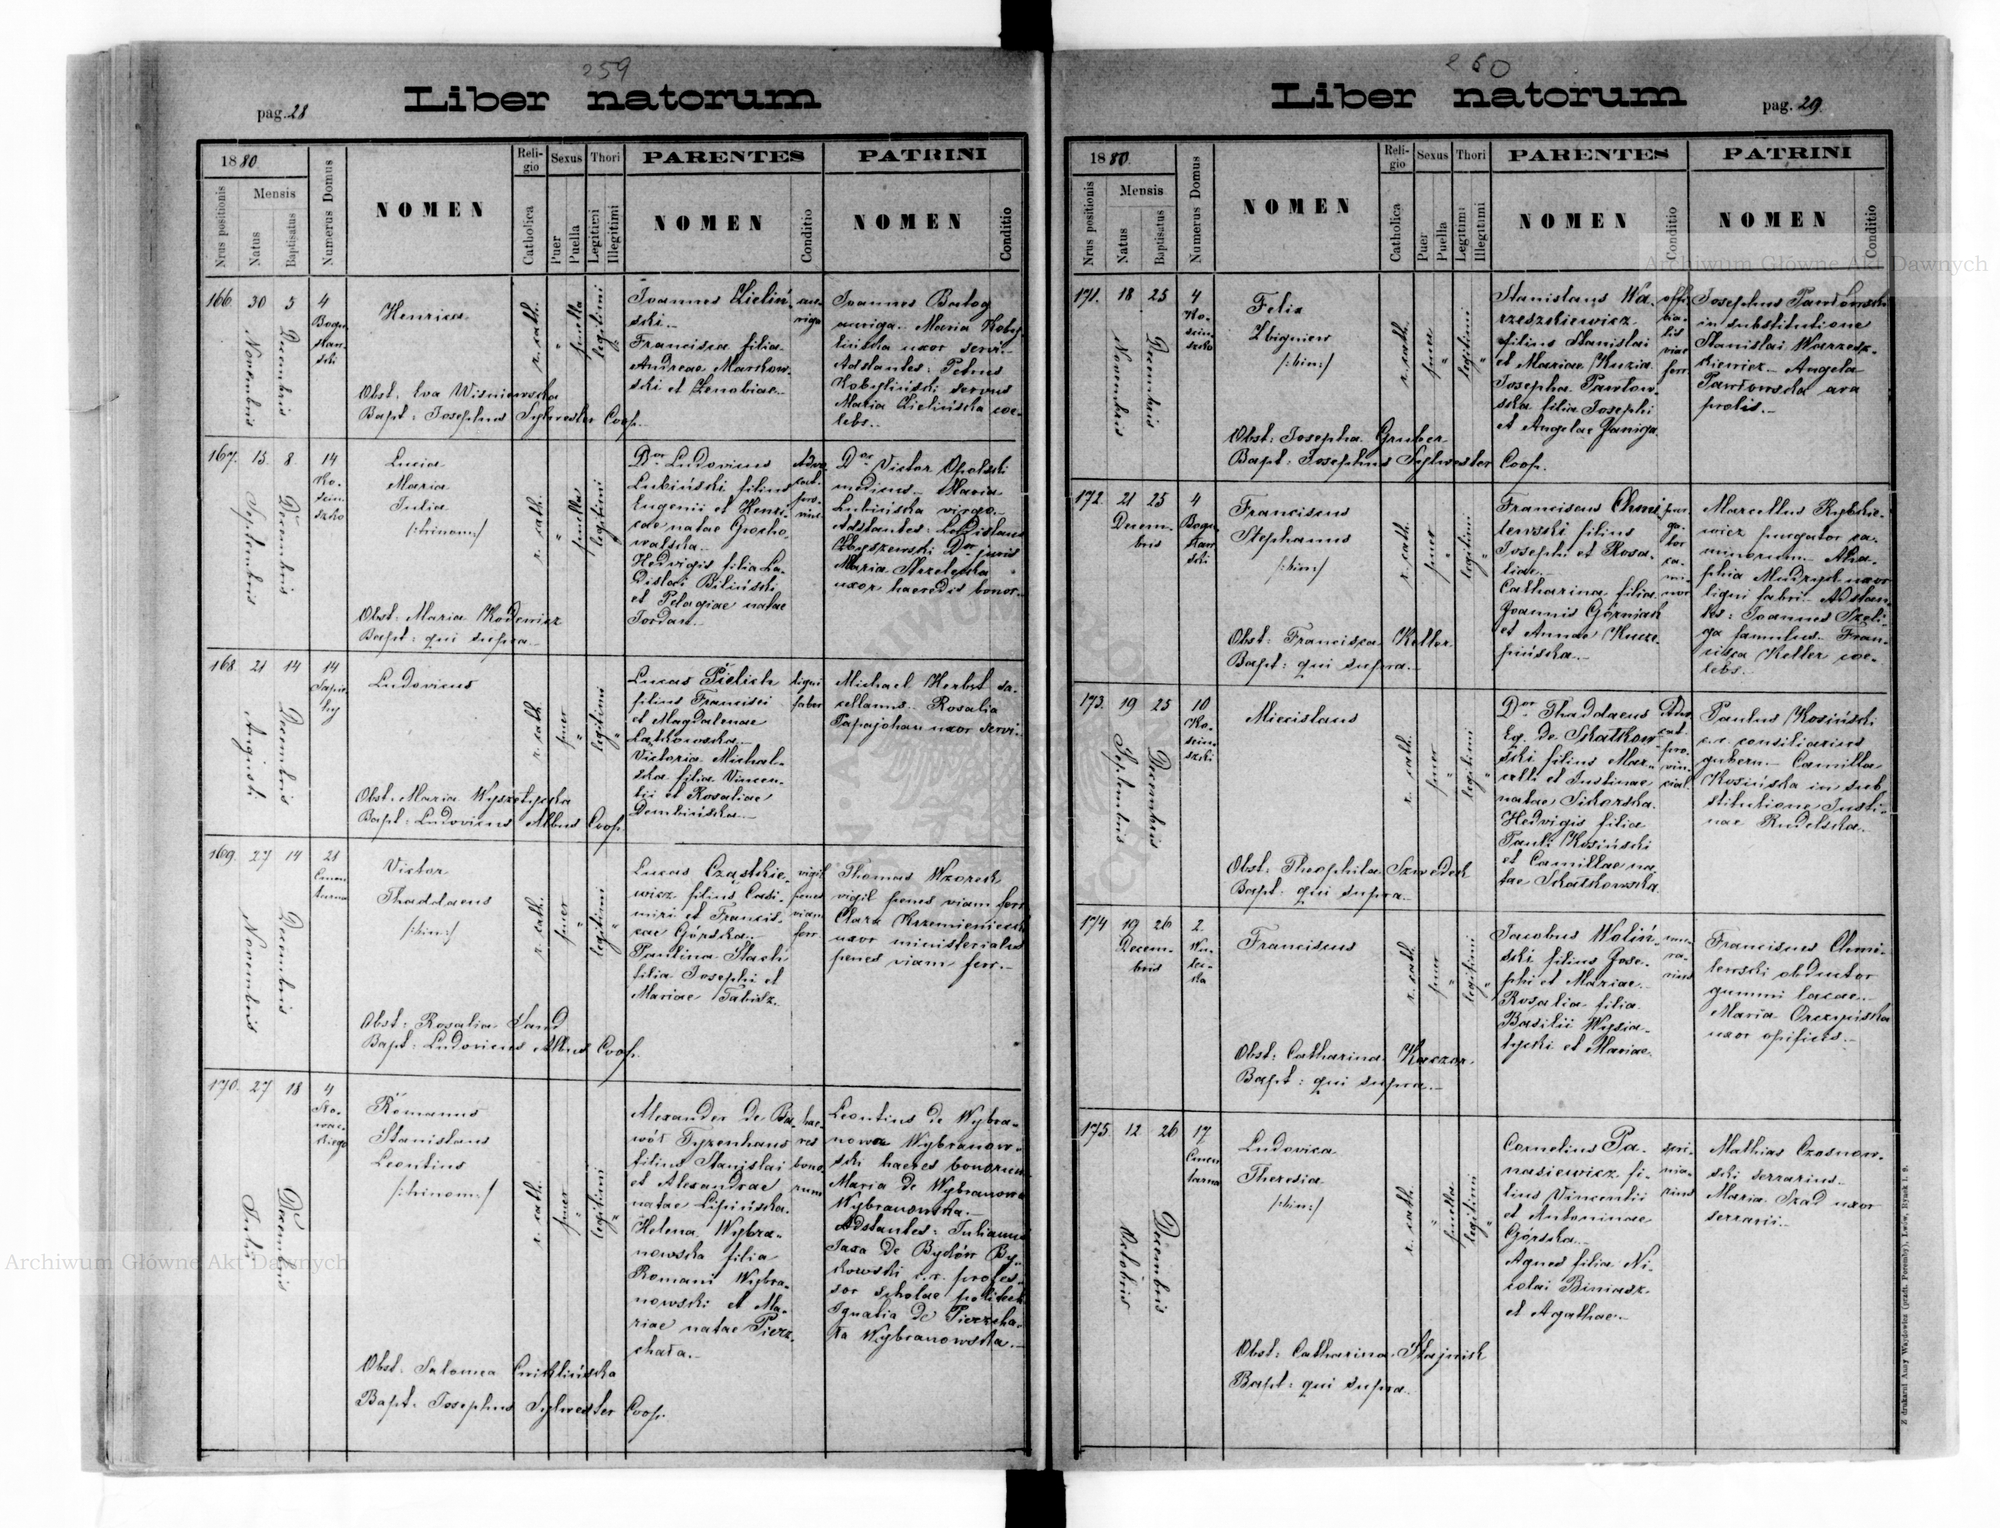 259
Liber natorum
pag. 28
1880.
Nrus positionis
Mensis
Natus
Baptisatus
Numerus Domus
NOMEN
Religio
Catholica
Sexus
Puer
Puella
Thori
Legitimi
Illegitimi
PARENTES
NOMEN
Conditio
PATRINI
NOMEN
Conditio
166. 30 Novembris 5 Decembris 4
Henrica
r. cath. " puella legitimi
Joannes Zieliń-
ski.
Francisca filia
Andreae Markow-
ski et Zenobiae.
au-
riga
Joannes Batog
auriga. Maria Koby-
lińska uxor servi.
Adstantes: Petrus
Kobyliński servus
Maria Zielińska coe-
lebs.
Obst. Eva Wiśniewska
Bapt: Josephus Sylwester Coop.
167. 15 Septembris 8 Decembris 14
Ko-
sciu-
szko
Lucia
Maria
Julia
/:trinom:/
r. cath. " puella legitimi
Dor Ludovicus
Lubiński filius
Eugenii et Henri-
cae natae Grocho-
walska.
Hedvigis filia La-
dislai Biliński
et Pelagiae natae
Jordan.
Dor Victor Opolski
medicus. Maria
Lubińska virgo.
Adstantes: Ladislaus
Zbyszewski Dor juris
Maria Strzelecka
uxor haeredis bonor.
Obst: Maria Kodewicz
Bapt: qui supra.
168. 21 Augusti 14 Decembris 14
Ludovicus
r. cath. puer " legitimi "
Lucas Pielich
filius Francisci
et Magdalenae
Łątkowska.
Victoria Michal-
ska filia Vincen-
tii et Rosaliae
Dembińska.
ligni
faber
Michael Herbst sa-
cellanus. Rosalia
Papajohan uxor servi.
Obst: Maria Wyszatycka
Bapt: Ludovicus Albus Coop.
169. 27 Novembris 14 Decembris 21
Victor
Thaddaeus
/:bin:/
r. cath. puer " legitimi "
Lucas Cząstkie-
wicz filius Casi-
miri et Francis-
cae Górska.
Paulina Stach
filia Josephi et
Mariae Tabisz.
vigil
penes
viam
ferr.
Thomas Wzorek
vigil penes viam ferr.
Clara Krzemieniecka
uxor ministerialis
penes viam ferr.
Obst: Rosalia Sand
Bapt: Ludovicus Albus Coop.
170. 27 Julii 18 Decembris 4
Romanus
Stanislaus
Leontius
/:trinom:/
r. cath. puer " legitimi "
Alexander de Ba-
wół Tyzenhaus
filius Stanislai
et Alexandrae
natae Lipińska.
Helena Wybra-
nowska filia
Romani Wybra-
nowski et Ma-
riae natae Pierz-
chała.
hae-
res
bono-
rum
Leontius de Wybra-
nowa Wybranow-
ski haeres bonorum
Maria de Wybranowa
Wybranowska.
Adstantes: Julianus
Jaxa de Byków By-
kowski c.r. profes-
sor scholae politech.
Ignatia de Pierzcha-
ła Wybranowska.
Obst. Salomea Cwiklińska
Bapt: Josephus Sylwester Coop.
260
Liber natorum
pag. 29.
1880.
Nrus positionis
Mensis
Natus
Baptisatus
Numerus Domus
NOMEN
Religio
Catholica
Sexus
Puer
Puella
Thori
Legitimi
Illegitimi
PARENTES
NOMEN
Conditio
PATRINI
NOMEN
Conditio
171. 18 Novembris 25 Decembris 4
Ko-
sciu-
szko
Felix
Zbigniew
/:bin:/
r. cath. puer " legitimi "
Stanislaus Wa-
rzeszkiewicz
filius Stanislai
et Mariae Kuzia.
Josepha Pawłow-
ska filia Josephi
et Angelae Janiga.
offi-
cia-
lis
viae
ferr.
Josephus Pawłowski
in substitutione
Stanislai Warzesz-
kiewicz. Angela
Pawłowska ava
prolis.
Obst: Josepha Gruber
Bapt: Josephus Sylwester Coop.
172. 21 Decem-
bris 25 4
Bogu-
sław-
ski
Franciscus
Stephanus
/:bin:/
r. cath. puer " legitimi "
Franciscus Chmie-
lewski filius
Josephi et Rosa-
liae.
Catharina filia
Joannis Górniak
et Annae Kurze-
pińska.
pur-
ga-
tor
ca-
mi-
nor
Marcellus Rybkie-
wicz purgator ca-
minorum. Aga-
phia Mudryk uxor
ligni fabri. Adstan-
tes: Joannes Szeli-
ga famulus. Fran-
cisca Keller coe-
lebs.
Obst: Francisca Keller
Bapt: qui supra.
173. 19 Septembris 25 Decembris 10
Ko-
sciu-
szki
Miecislaus
r. cath. puer " legitimi "
Dor Thaddaeus
Eq. de Skałkow-
ski filius Mar-
celli et Justinae
natae Sikorska.
Hedvigis filia
Pauli Kosiński
et Camillae na-
tae Skałkowska.
Adv-
cat.
pro-
vin-
cial.
Paulus Kosiński
c.r. consiliarius
gubern. Camilla
Kosińska in sub-
stitutione Justi-
nae Rudelska.
Obst: Theophila Szwedek
Bapt: qui supra.
174 19 Decem-
bris 26 2
Franciscus
r. cath. puer " legitimi "
Jacobus Woliń-
ski filius Jose-
phi et Mariae.
Rosalia filia
Basilii Wysia-
tycki et Mariae.
mu-
ra-
rius
Franciscus Chmie-
lewski obductor
gummi lacae.
Maria Orczyńska
uxor opificis.
Obst: Catharina Kaczor.
Bapt: qui supra.
175. 12 Octobris 26 Decembris 17
Ludovica
Theresia
/:bin:/
r. cath. " puella legitimi "
Cornelius Pa-
nasiewicz fi-
lius Vincentii
et Antoninae
Górska.
Agnes filia Ni-
colai Biniasz
et Agathae.
scri-
nia-
rius
Mathias Czosnow-
ski serrarius.
Maria Szad uxor
serrarii.
Obst: Catharina Stajnich
Bapt: qui supra.
Z drukarni Anny Wajdowicz (przdt. Poremby), Lwów, Rynek l. 9.
Archiwum Główne Akt Dawnych
Archiwum Główne Akt Dawnych